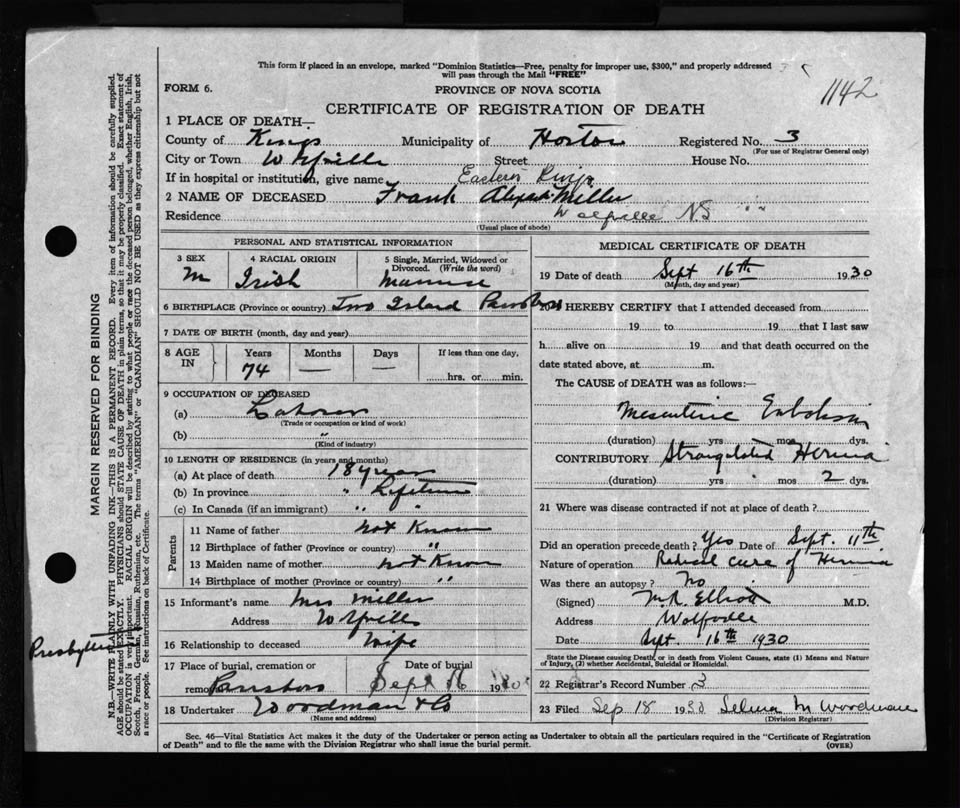 This form if placed in an envelope, marked "Dominion Statistics—Free, penalty for improper use, $300," and properly addressed
will pass through the Mail "FREE"
FORM 6.
PROVINCE OF NOVA SCOTIA
1142
CERTIFICATE OF REGISTRATION OF DEATH
1 PLACE OF DEATH—
County of Kings Municipality of Horton Registered No. 3
(For use of Registrar General only)
City or Town Wolfville Street House No.
If in hospital or institution, give name Eastern Kings
2 NAME OF DECEASED Frank Miller
Residence Wolfville NS " "
(Usual place of abode)
PERSONAL AND STATISTICAL INFORMATION
3 SEX 4 RACIAL ORIGIN 5 Single, Married, Widowed or
Divorced. (Write the word)
M Irish Married
6 BIRTHPLACE (Province or country) Two Island Parrsboro
7 DATE OF BIRTH (month, day and year)
8 AGE IN Years Months Days If less than one day.
74 — — hrs. or min.
9 OCCUPATION OF DECEASED
(a) Laborer
(Trade or occupation or kind of work)
(b) "
(Kind of industry)
10 LENGTH OF RESIDENCE (in years and months)
(a) At place of death 18 years
(b) In province " Lifetime
(c) In Canada (if an immigrant) " "
Parents
11 Name of father not Known
12 Birthplace of father (Province or country) "
13 Maiden name of mother not Known
14 Birthplace of mother (Province or country) "
15 Informant's name Mrs Miller
Address Wolfville
16 Relationship to deceased Wife
17 Place of burial, cremation or Date of burial
removal Parrsboro Sept 16 1930
18 Undertaker Woodman & Co
(Name and address)
MEDICAL CERTIFICATE OF DEATH
19 Date of death Sept 16th 1930
(Month, day and year)
20 I HEREBY CERTIFY that I attended deceased from
19 to 19 that I last saw
h alive on 19 and that death occurred on the
date stated above, at m.
The CAUSE of DEATH was as follows:—
Mesenteric Embolism
(duration) yrs. mos. dys.
CONTRIBUTORY Strangulated Hernia
(duration) yrs mos 2 dys.
21 Where was disease contracted if not at place of death?
Did an operation precede death? Yes Date of Sept. 11th.
Nature of operation Radical cure of Hernia
Was there an autopsy? No
(Signed) M.R. Elliott M.D.
Address Wolfville
Date Sept. 16th 1930
State the Disease causing Death, or in death from Violent Causes, state (1) Means and Nature
of Injury, (2) whether Accidental, Suicidal or Homicidal.
22 Registrar's Record Number 3
23 Filed Sep 18 1930 Selina M Woodman
(Division Registrar)
Sec. 46—Vital Statistics Act makes it the duty of the Undertaker or person acting as Undertaker to obtain all the particulars required in the "Certificate of Registration
of Death" and to file the same with the Division Registrar who shall issue the burial permit.
(OVER)
MARGIN RESERVED FOR BINDING
N.B.—WRITE PLAINLY WITH UNFADING INK—THIS IS A PERMANENT RECORD. Every item of information should be carefully supplied.
AGE should be stated EXACTLY. PHYSICIANS should STATE CAUSE OF DEATH in plain terms, so that it may be properly classified. Exact statement of
OCCUPATION is very important. RACIAL ORIGIN will be described by stating to what people or race the deceased person belonged, whether English, Irish,
Scotch, French, German, Russian, Ruthenian, etc. The terms "AMERICAN" or "CANADIAN" SHOULD NOT BE USED as they express citizenship but not
a race or people. See instructions on back of Certificate.